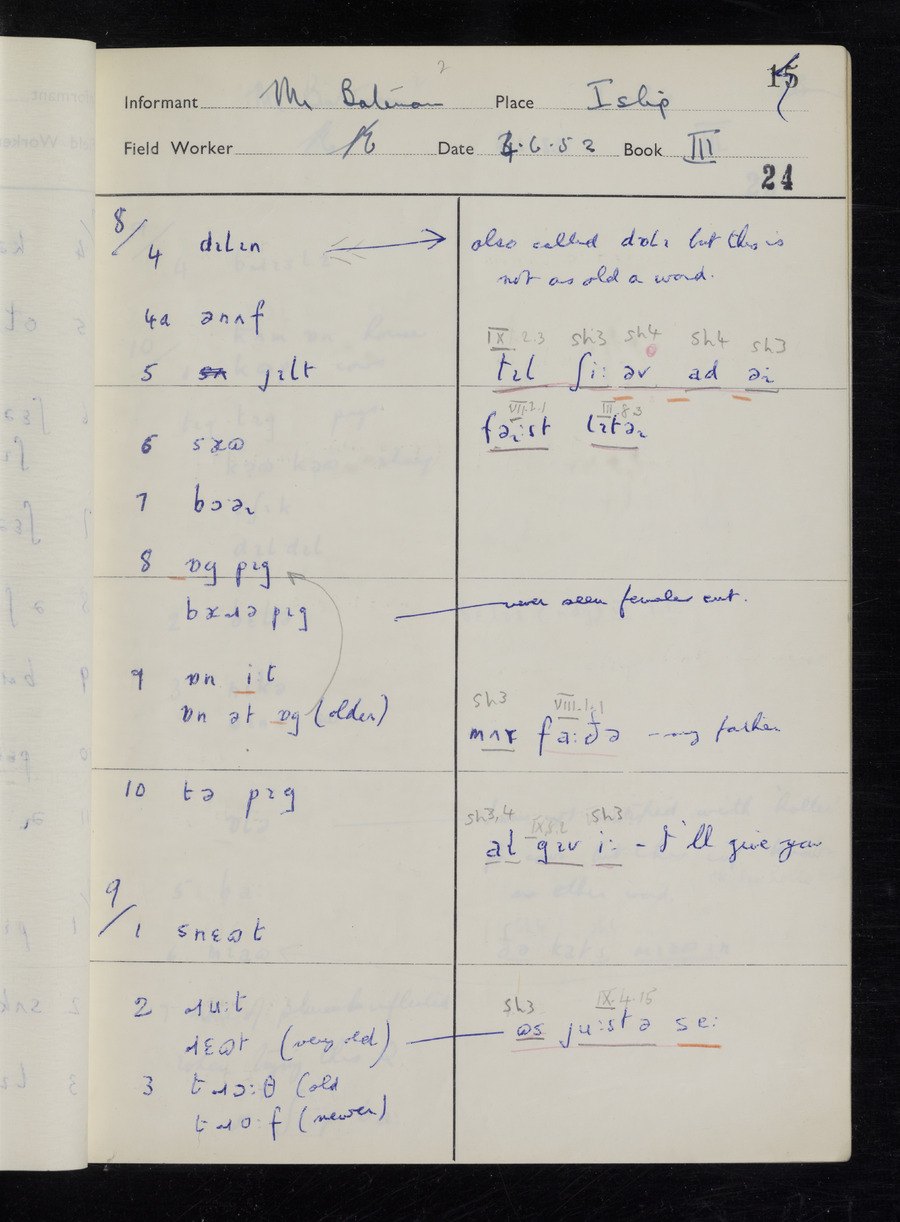 2
15
Informant Mr Bateman Place Islip
Field Worker Date 4.6.52 Book III
24
8/
4 dɪlɪn
also called dɒlɪ but this is
not as old a word.
4a ənʌf
IX.2.3 sh3 sh4 sh4 sh3
5 gɪlt
tɪl ʃi: əv ad əɪ
VII.2.1 III.8.3
fəɪst lɪtəɪ
6
7 bɔəɪ
8 ɒg pɪg
pɪg
never seen female cut.
9 ɒn i:t
ɒn ət ɒg (older)
sh3 VIII.1.1
fa:ðə - my father
10 tə pɪg
sh3,4 IX.8.2 sh3
al gɪv i: - I'll give you
9/
1 snɛɷt
2 ɹu:t
ɹɛɷt (very old)
sh3 IX.4.15
ɷs ju:stə se:
3 tɹɔ:θ (old
tɹo:f (newer)